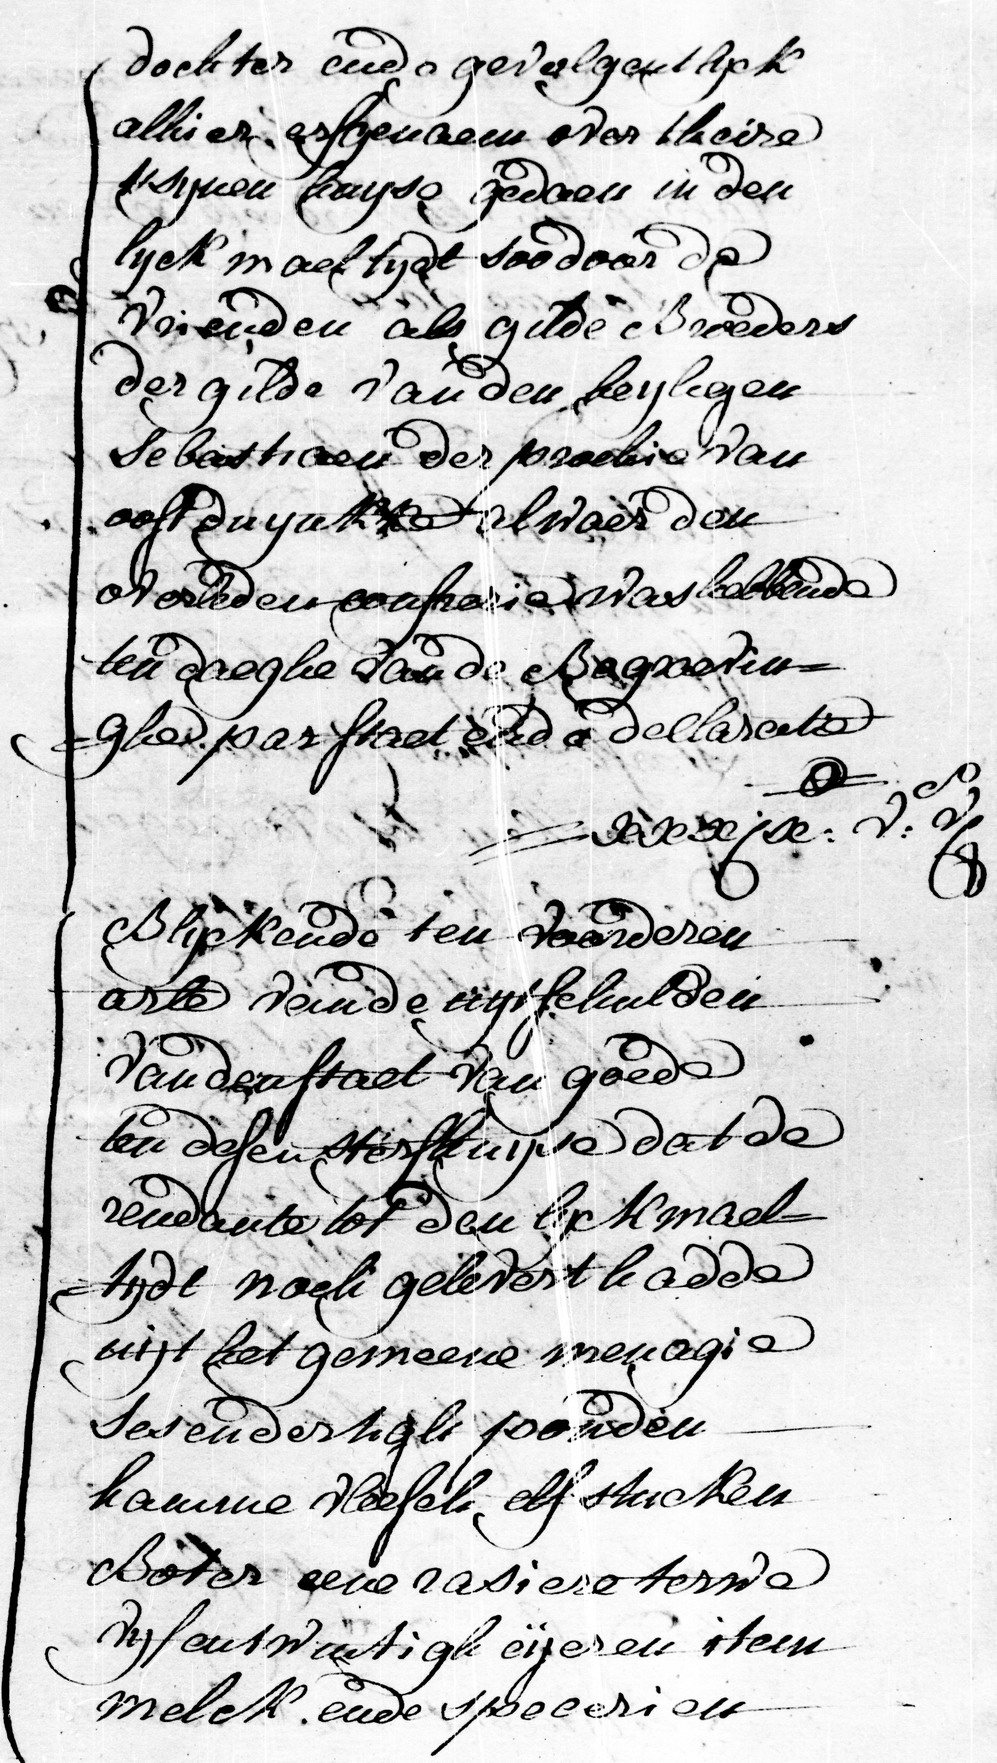 dochter ende gevolgentlyck
alhier erfgenaem over theire
tsynen huyse gedaen in den
lyck maeltydt soo door de
vrienden als gilde Broeders
der gilde van den heylegen
Sebastiaen der prochie van
oostduyncke alwaer den
overleden confrerie was hebbende
ten daeghe van de Begraevin=
=ghe. par staet ende dellaratie
Blyckende ten voorderen
arte vande uytschulden
van den staet van goede
ten desen sterfhuyse dat de
rendante tot den lyckmael=
=tydt noch gelevert hadde
uyt het gemeene menagie
sesendertigh ponden
hamme vleesch, elf stucken
Boter eene rasiere terwe
vyfentwintigh eyeren item
melck ende specerien